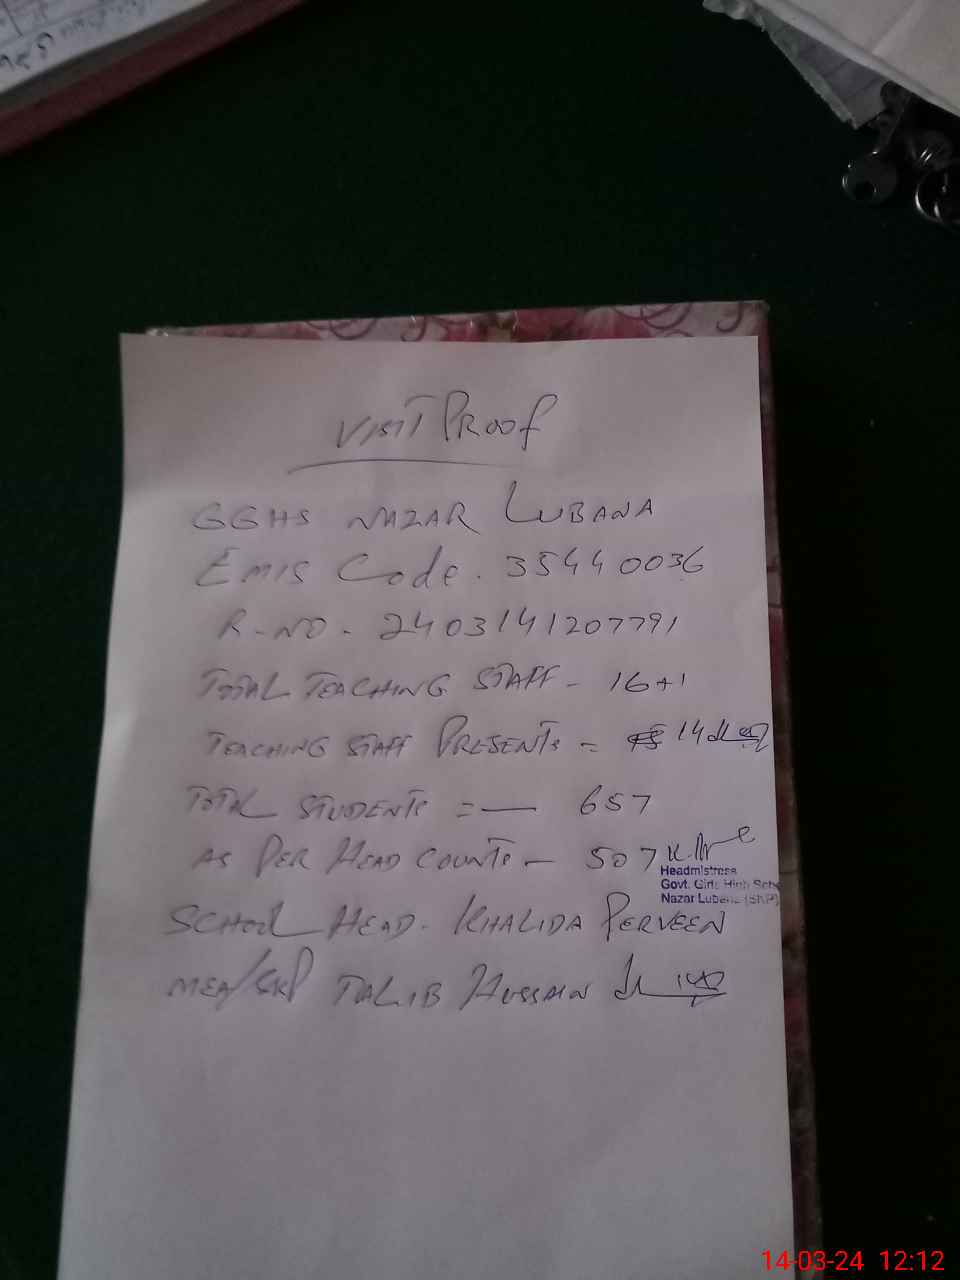 VISIT PROOF
GGHS NAZAR LUBANA
EMIS Code. 35440036
R-NO. 2403141207791
TOTAL TEACHING STAFF - 16+1
TEACHING STAFF PRESENTS = 14
TOTAL STUDENTS = — 657
AS PER HEAD COUNTS - 507
Headmistress
Govt. Girls High Scho
Nazar Lubana (SKP)
SCHOOL HEAD. KHALIDA PERVEEN
MEA/SKP TALIB HUSSAIN
14-03-24 12:12